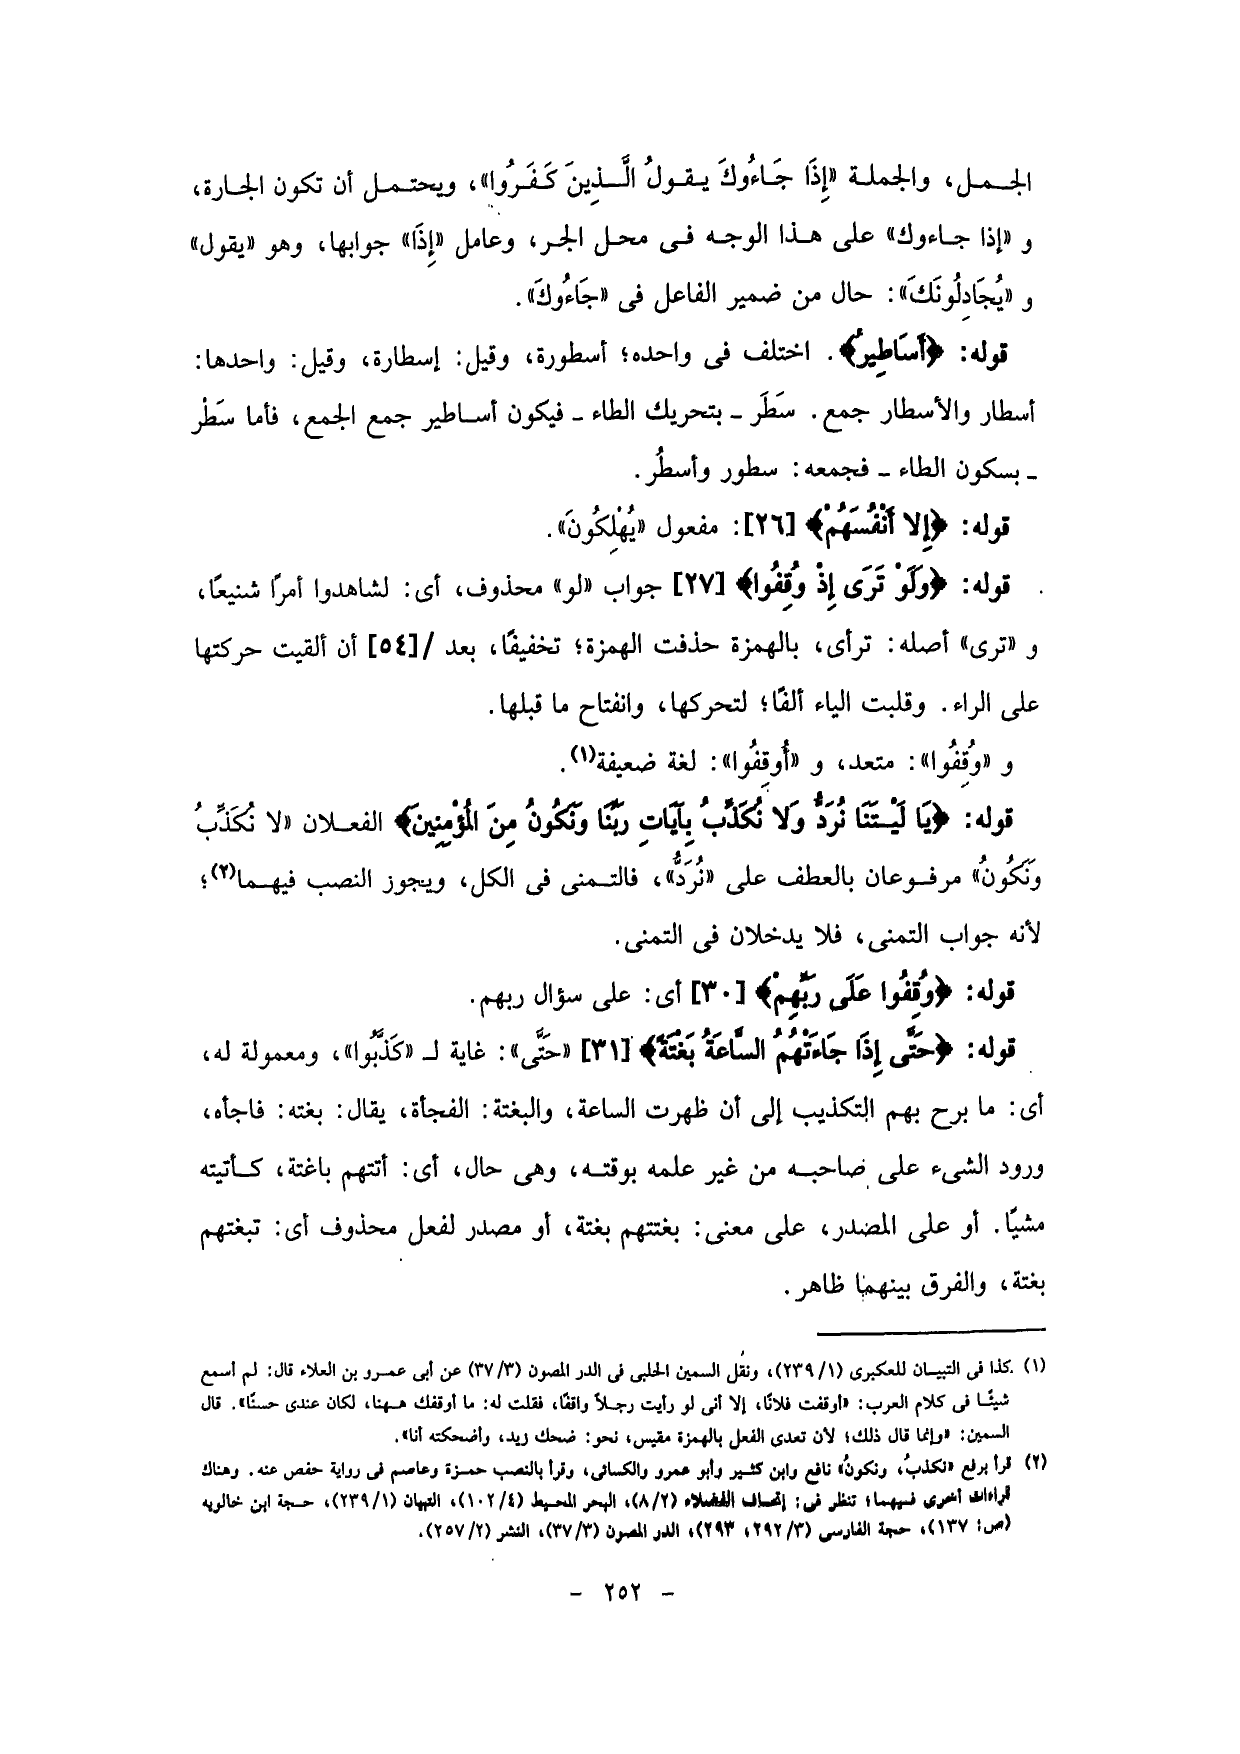 الجمل، والجملة «إِذَا جَاءُوكَ يقولُ الَّذِينَ كَفَرُوا»، ويحتمل أن تكون الجارة،
و «إذا جاءوك» على هذا الوجه فى محل الجر، وعامل «إِذَا» جوابها، وهو «يقول»
و «يُجَادِلُونَكَ»: حال من ضمير الفاعل فى «جَاءُوكَ».
قوله: ﴿أَسَاطِيرُ﴾. اختلف فى واحده؛ أسطورة، وقيل: إسطارة، وقيل: واحدها:
أسطار والأسطار جمع. سَطَر ـ بتحريك الطاء ـ فيكون أساطير جمع الجمع، فأما سَطْر
ـ بسكون الطاء ـ فجمعه: سطور وأسطُر.
قوله: ﴿إِلا أَنْفُسَهُمْ﴾ [٢٦]: مفعول «يُهْلِكُونَ».
قوله: ﴿وَلَوْ تَرَى إِذْ وُقِفُوا﴾ [٢٧] جواب «لو» محذوف، أى: لشاهدوا أمرًا شنيعًا،
و «ترى» أصله: ترأى، بالهمزة حذفت الهمزة؛ تخفيفًا، بعد /[٥٤] أن ألقيت حركتها
على الراء. وقلبت الياء ألفًا؛ لتحركها، وانفتاح ما قبلها.
و «وُقِفُوا»: متعد، و «أُوقِفُوا»: لغة ضعيفة(١).
قوله: ﴿يَا لَيْتَنَا نُرَدُّ وَلا نُكَذِّبُ بِآيَاتِ رَبِّنَا وَنَكُونُ مِنَ الْمُؤْمِنِينَ﴾ الفعلان «لا نُكَذِّبُ
وَنَكُونُ» مرفوعان بالعطف على «نُرَدُّ»، فالتمنى فى الكل، ويجوز النصب فيهما(٢)؛
لأنه جواب التمنى، فلا يدخلان فى التمنى.
قوله: ﴿وُقِفُوا عَلَى رَبِّهِمْ﴾ [٣٠] أى: على سؤال ربهم.
قوله: ﴿حَتَّى إِذَا جَاءَتْهُمُ السَّاعَةُ بَغْتَةً﴾ [٣١] «حَتَّى»: غاية لـ «كَذَّبُوا»، ومعمولة له،
أى: ما برح بهم التكذيب إلى أن ظهرت الساعة، والبغتة: الفجأة، يقال: بغته: فاجأه،
ورود الشىء على صاحبه من غير علمه بوقته، وهى حال، أى: أتتهم باغتة، كأتيته
مشيًا. أو على المصدر، على معنى: بغتتهم بغتة، أو مصدر لفعل محذوف أى: تبغتهم
بغتة، والفرق بينهما ظاهر.
(١) كذا فى التبيان للعكبرى (٢٣٩/١)، ونقل السمين الحلبى فى الدر المصون (٣٧/٣) عن أبى عمرو بن العلاء قال: لم أسمع
شيئًا فى كلام العرب: «أوقفت فلانًا، إلا أنى لو رأيت رجلاً واقفًا، فقلت له: ما أوقفك ههنا، لكان عندى حسنًا». قال
السمين: «وإنما قال ذلك؛ لأن تعدى الفعل بالهمزة مقيس، نحو: ضحك زيد، وأضحكته أنا».
(٢) قرأ برفع «نكذبُ، ونكونُ» نافع وابن كثير وأبو عمرو والكسائى، وقرأ بالنصب حمزة وعاصم فى رواية حفص عنه. وهناك
قراءات أخرى فيهما؛ تنظر فى: إتحاف الفضلاء (٨/٢)، البحر المحيط (١٠٢/٤)، التبيان (٢٣٩/١)، حجة ابن خالويه
(ص: ١٣٧)، حجة الفارسى (٢٩٢/٣، ٢٩٣)، الدر المصون (٣٧/٣)، النشر (٢٥٧/٢).
- ٢٥٢ -